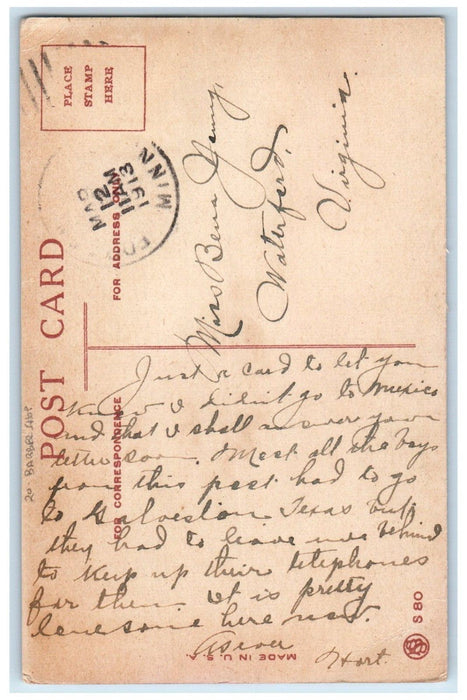 PLACE
STAMP
HERE
MAR
12
11 AM
1913
MINN
POST CARD
FOR ADDRESS ONLY
Miss Bena
Waterford.
Virginia.
20 BARBER SHOP
FOR CORRESPONDENCE
Just a card to let you
know I didnt go to Mexico
and that I shall answer your
letter soon. Most all the boys
from this post had to go
to Galveston Texas but
they had to leave me behind
to keep up their telephones
for them. It is pretty
lonesome here now.
Hort.
MADE IN U.S.A.
S 80